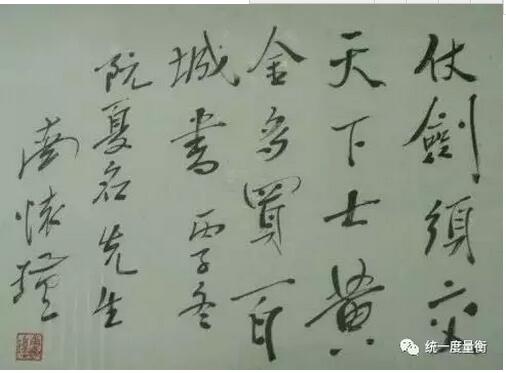 仗劍須交
天下士黃
金多買百
城書 丙子冬
夏 先生
南懷瑾
统一度量衡